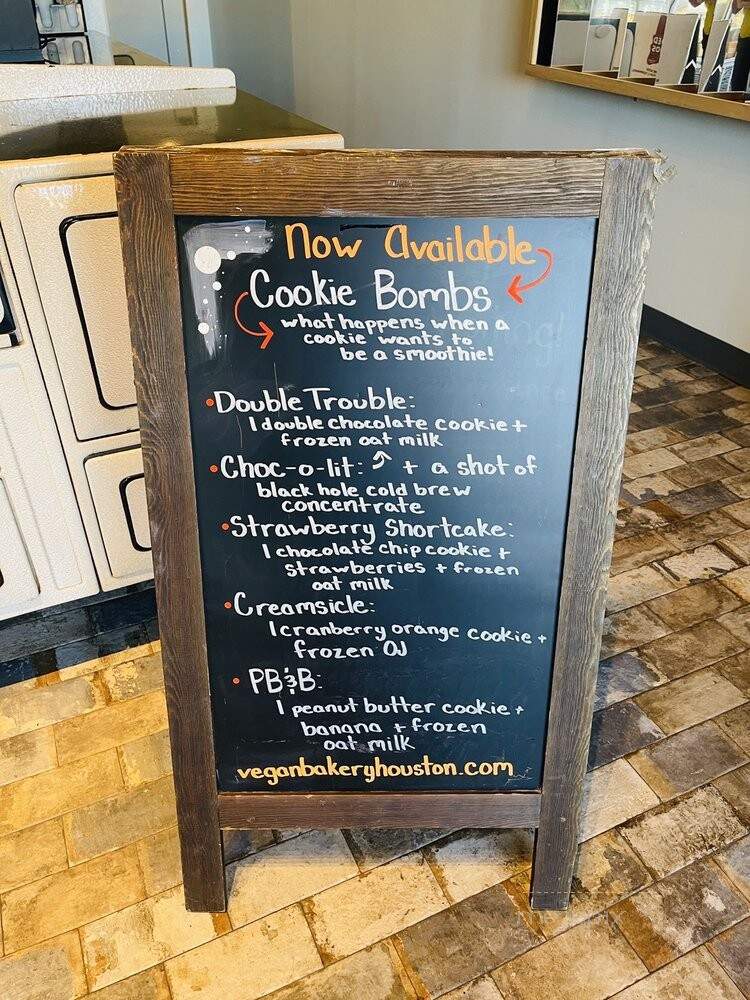 Now Available
Cookie Bombs
what happens when a
cookie wants to
be a smoothie!
• Double Trouble:
1 double chocolate cookie +
frozen oat milk
• Choc-o-lit: + a shot of
black hole cold brew
concentrate
• Strawberry Shortcake:
1 chocolate chip cookie +
strawberries + frozen
oat milk
• Creamsicle:
1 cranberry orange cookie +
frozen OJ
• PB&B:
1 peanut butter cookie +
banana + frozen
oat milk
veganbakeryhouston.com